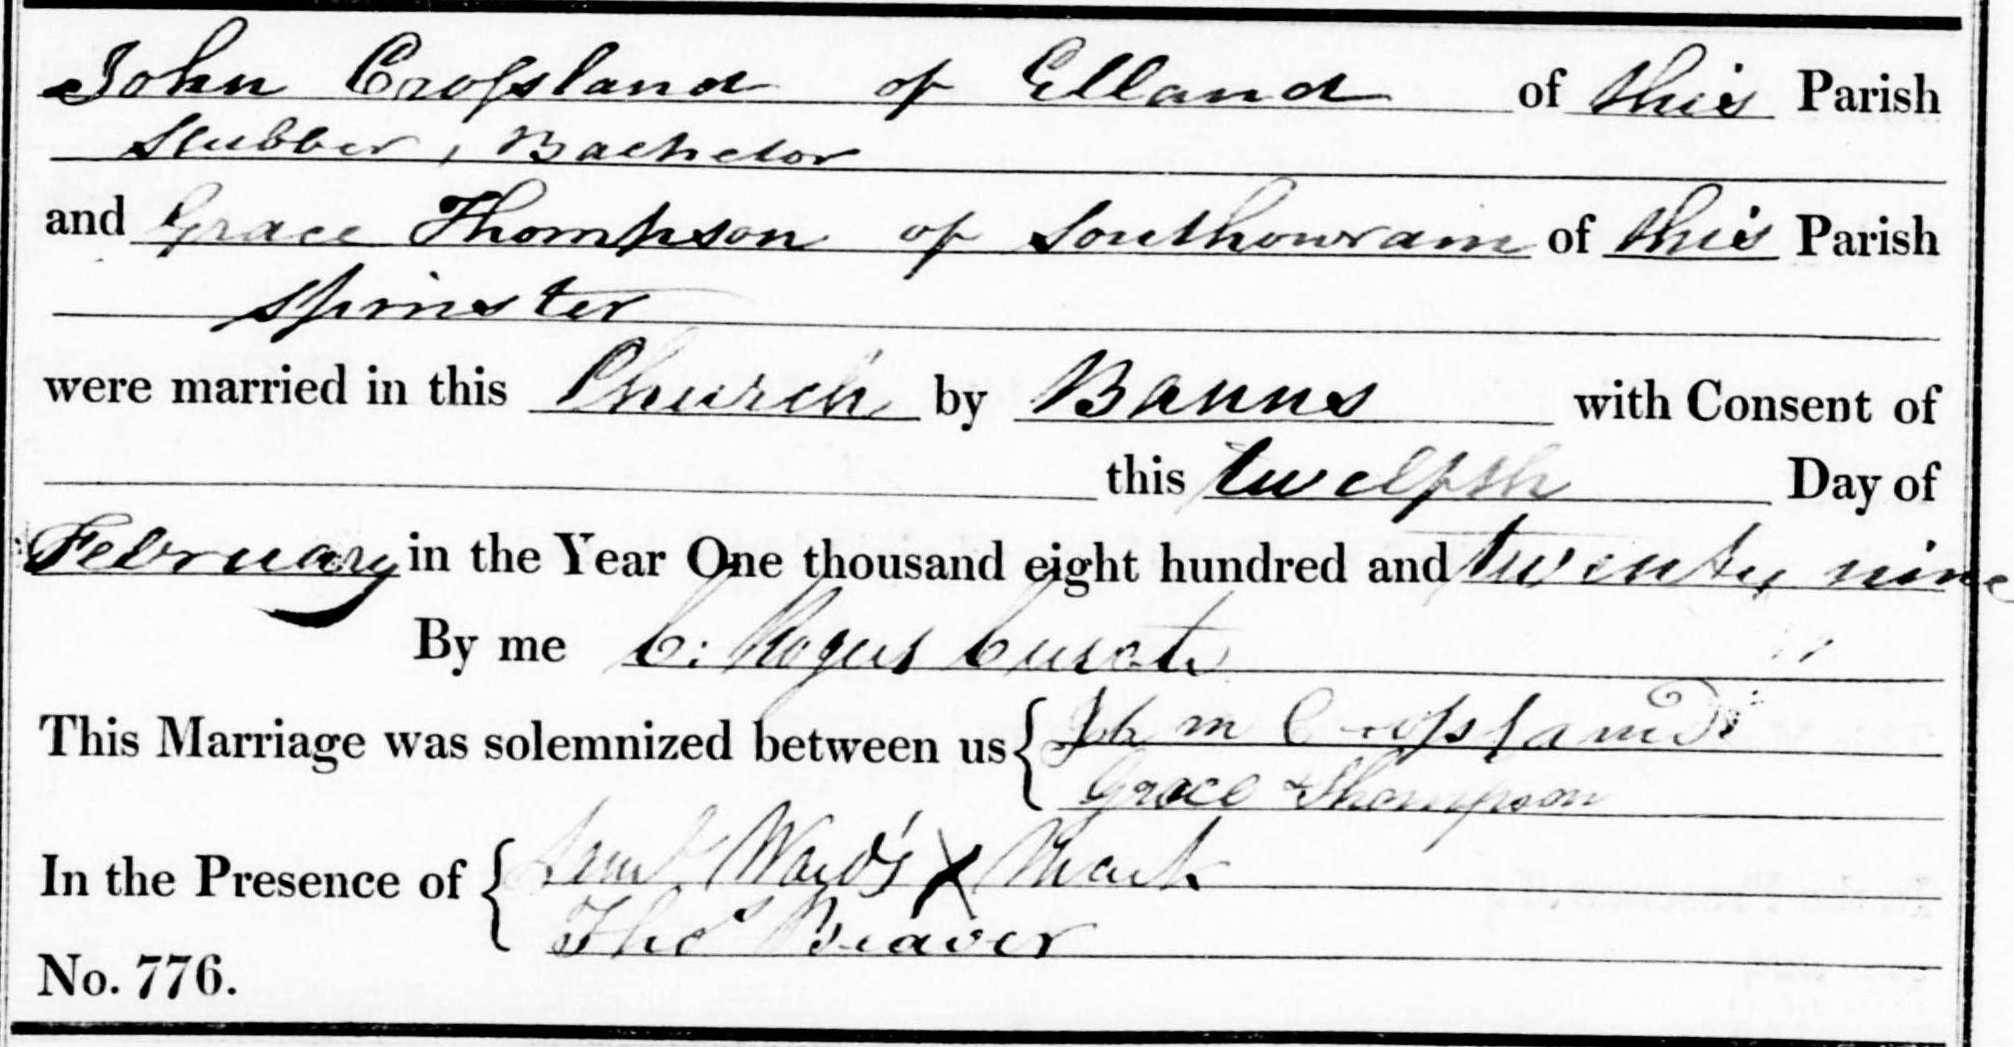 John Croſsland of Elland of this Parish
Slubber, Bachelor
and Grace Thompson of Southowram of this Parish
Spinster
were married in this Church by Banns with Consent of
this twelfth Day of
February in the Year One thousand eight hundred and twenty nine
By me C: Rogers Curate
This Marriage was solemnized between us { John Croſsland
Grace Thompson
In the Presence of { Saml Wayd's X Mark
Thos Beaver
No. 776.